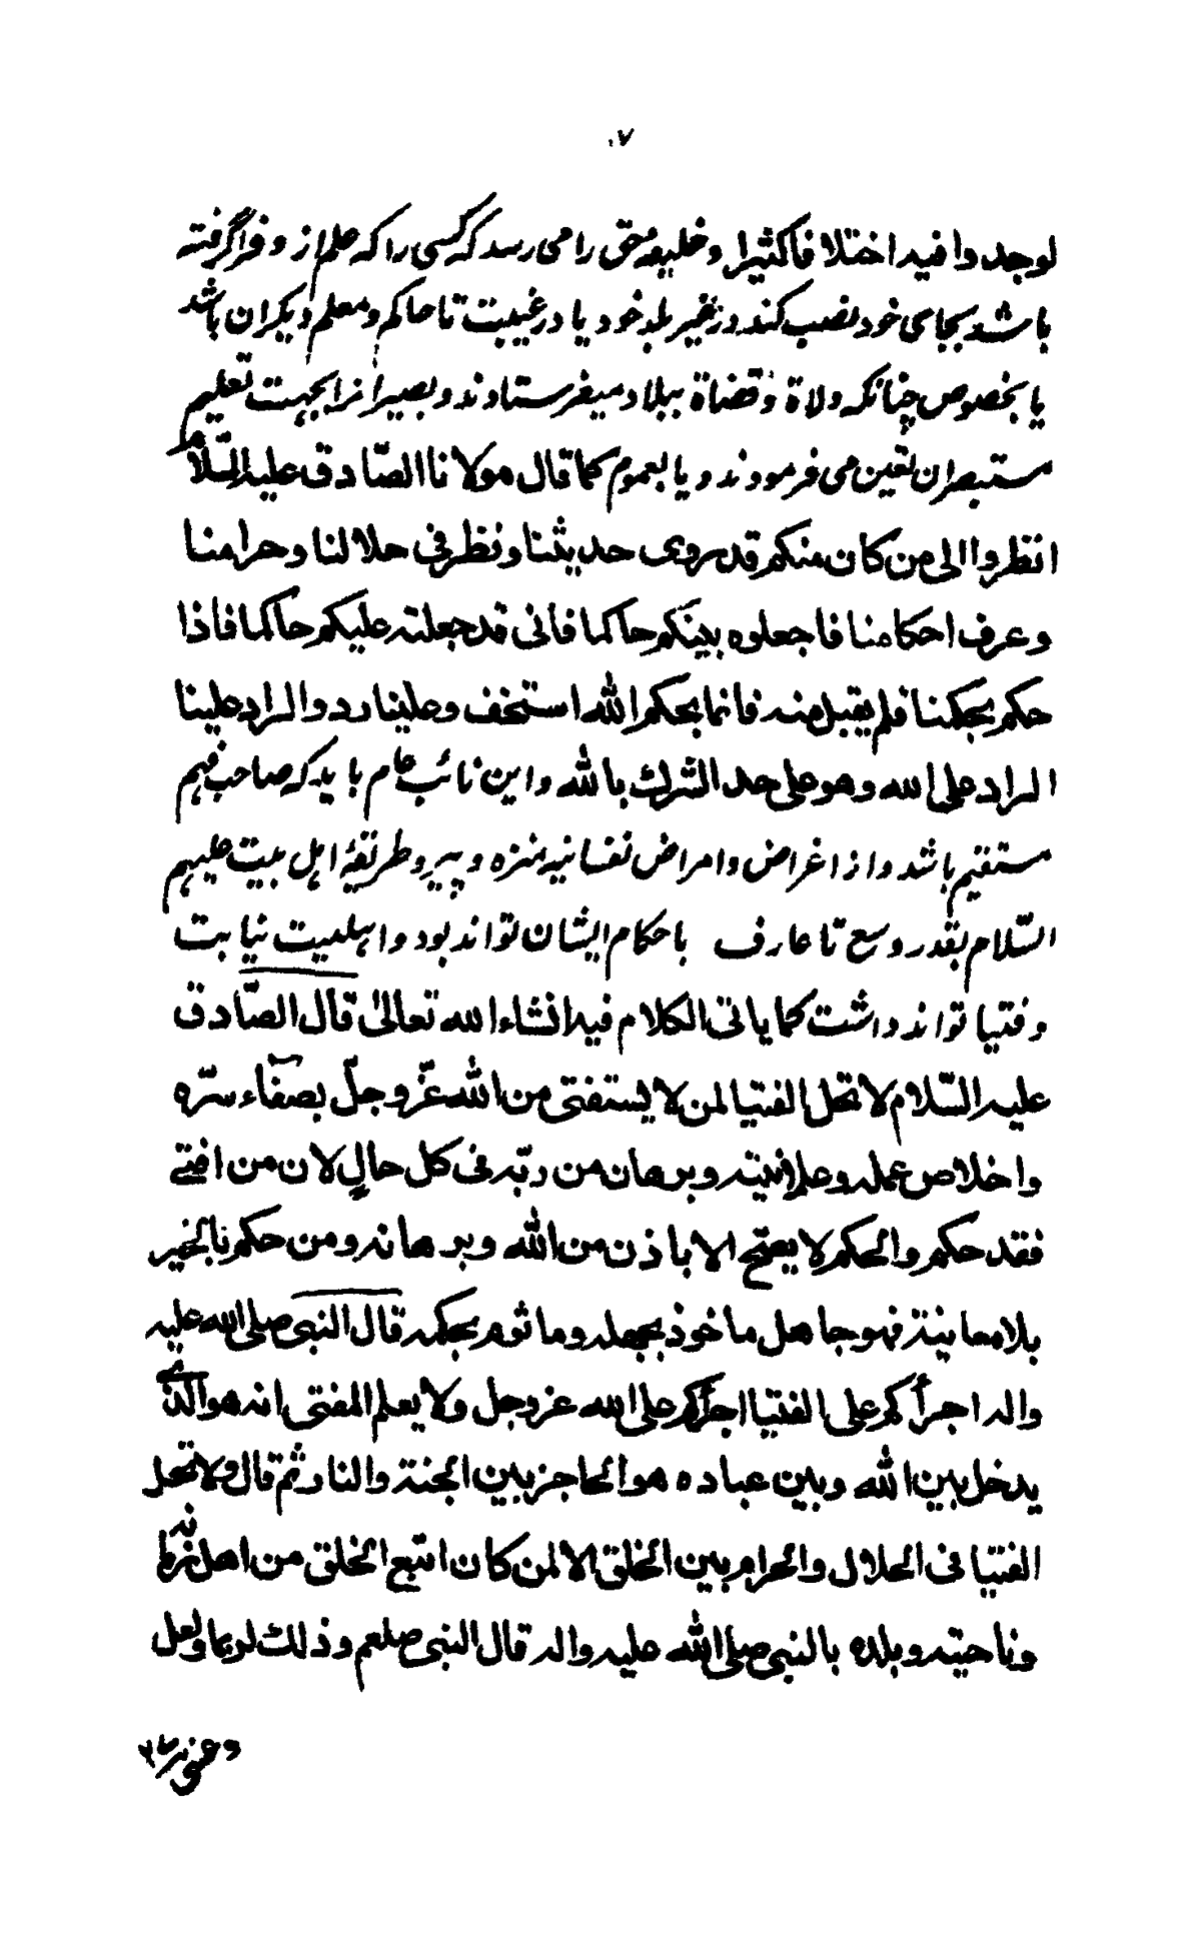 ۰۷
لوجدوا فیه اختلافا کثیرا و خلیفهٔ حق را می رسد که کسی را که علم از و فرا گرفته
باشد بجای خود نصب کند در غیر بلد خود یا در غیبت تا حاکم و معلم دیگران باشد
یا بخصوص چنانکه ولاة و قضاة ببلاد میفرستادند و بصیرانرا بجهت تعلیم
مستبصران تعین می فرمودند و یا بعموم کما قال مولانا الصّادق علیه السّلام
انظروا الی من کان منکم قد روی حدیثنا و نظر فی حلالنا و حرامنا
و عرف احکامنا فاجعلوه بینکم حاکما فانی قد جعلته علیکم حاکما فاذا
حکم بحکمنا فلم یقبل منه فانما بحکم الله استخف و علینا رد و الراد علینا
الراد علی الله و هو علی حد الشرک بالله و این نائب عام باید که صاحب فهم
مستقیم باشد و از اغراض و امراض نفسانیه منزه و پیرو طریقهٔ اهل بیت علیهم
السّلام بقدر وسع تا عارف باحکام ایشان تواند بود و اهلبیت نیابت
و فتیا تواند داشت کما یاتی الکلام فیه انشاء الله تعالی قال الصّادق
علیه السّلام لا تحل الفتیا لمن لا یستفتی من الله عزّ و جلّ بصفاء سرّه
و اخلاص عمله و علانیته و برهان من ربّه فی کل حالٍ لان من افتی
فقد حکم و الحکم لا یصح الا باذن من الله و برهانه و من حکم بالخبر
بلا معاینة فهو جاهل ماخوذ بجهله و ماثوم بحکمه قال النبی صلی الله علیه
و اله اجرأکم علی الفتیا اجرأکم علی الله عز و جل و لا یعلم المفتی انه هو الذی
یدخل بین الله و بین عباده هو الحاجز بین الجنة و النار ثم قال و لا تحل
الفتیا فی الحلال و الحرام بین الخلق الا لمن کان اتبع الخلق من اهل زمانه
و ناحیته و بلده بالنبی صلی الله علیه و اله قال النبی صلعم و ذلک لربما و لعل